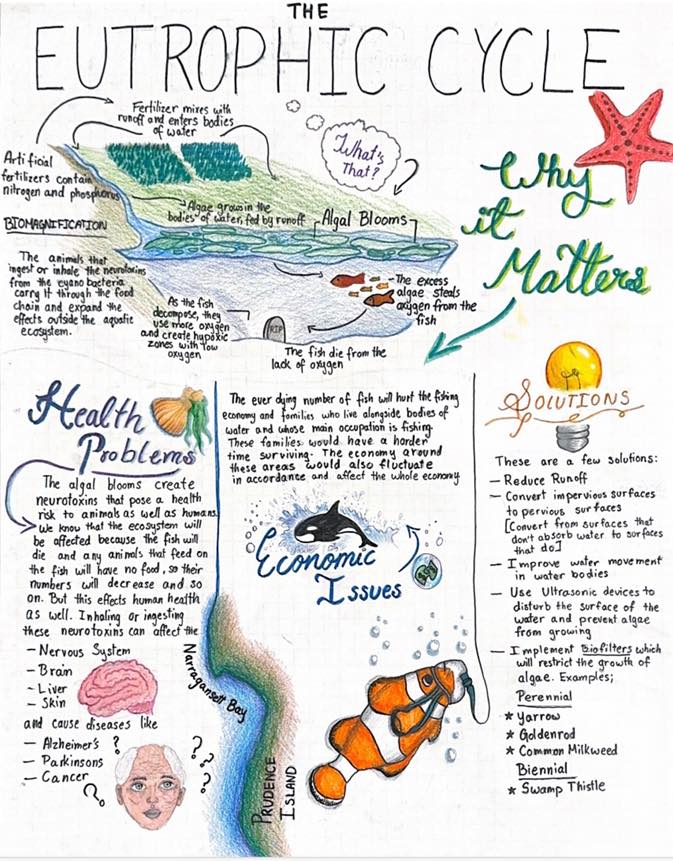 THE
EUTROPHIC CYCLE
Fertilizer mixes with
runoff and enters bodies
of water
What's
That?
Artificial
fertilizers contain
nitrogen and phosphorus
Algae grows in the
bodies of water, fed by runoff
Algal Blooms
BIOMAGNIFICATION
The animals that
ingest or inhale the neurotoxins
from the cyano bacteria
carry it through the food
chain and expand the
effects outside the aquatic
ecosystem.
As the fish
decompose, they
use more oxygen
and create hypoxic
zones with low
oxygen
RIP
The excess
algae steals
oxygen from the
fish
The fish die from the
lack of oxygen
Why
it
Matters
Health
Problems
The algal blooms create
neurotoxins that pose a health
risk to animals as well as humans.
We know that the ecosystem will
be affected because the fish will
die and any animals that feed on
the fish will have no food, so their
numbers will decrease and so
on. But this effects human health
as well. Inhaling or ingesting
these neurotoxins can affect the
— Nervous System
— Brain
— Liver
— Skin
and cause diseases like
— Alzheimer's ?
— Parkinsons
— Cancer
?
? ? ?
The ever dying number of fish will hurt the fishing
economy and families who live alongside bodies of
water and whose main occupation is fishing.
These families would have a harder
time surviving. The economy around
these areas would also fluctuate
in accordance and affect the whole economy
Economic
Issues
Narragansett Bay
PRUDENCE
ISLAND
SOLUTIONS
These are a few solutions:
— Reduce Runoff
— Convert impervious surfaces
to pervious surfaces
[Convert from surfaces that
don't absorb water to surfaces
that do]
— Improve water movement
in water bodies
— Use Ultrasonic devices to
disturb the surface of the
water and prevent algae
from growing
— Implement Biofilters which
will restrict the growth of
algae. Examples;
Perennial
* Yarrow
* Goldenrod
* Common Milkweed
Biennial
* Swamp Thistle